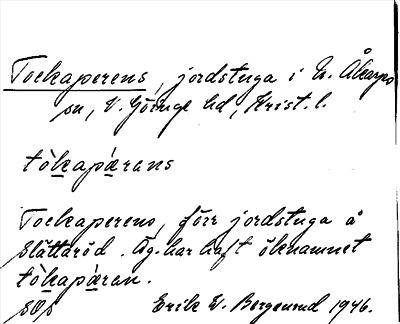 Tockaperens, jordstuga i N. Åkarps
sn, V. Göinge hd, Krist. l.
tòkapǽrans
Tockaperens, förr jordstuga å
Slättaröd. Äg. har haft öknamnet
tòkapǽran.
Erik W. Bergerund 1946.